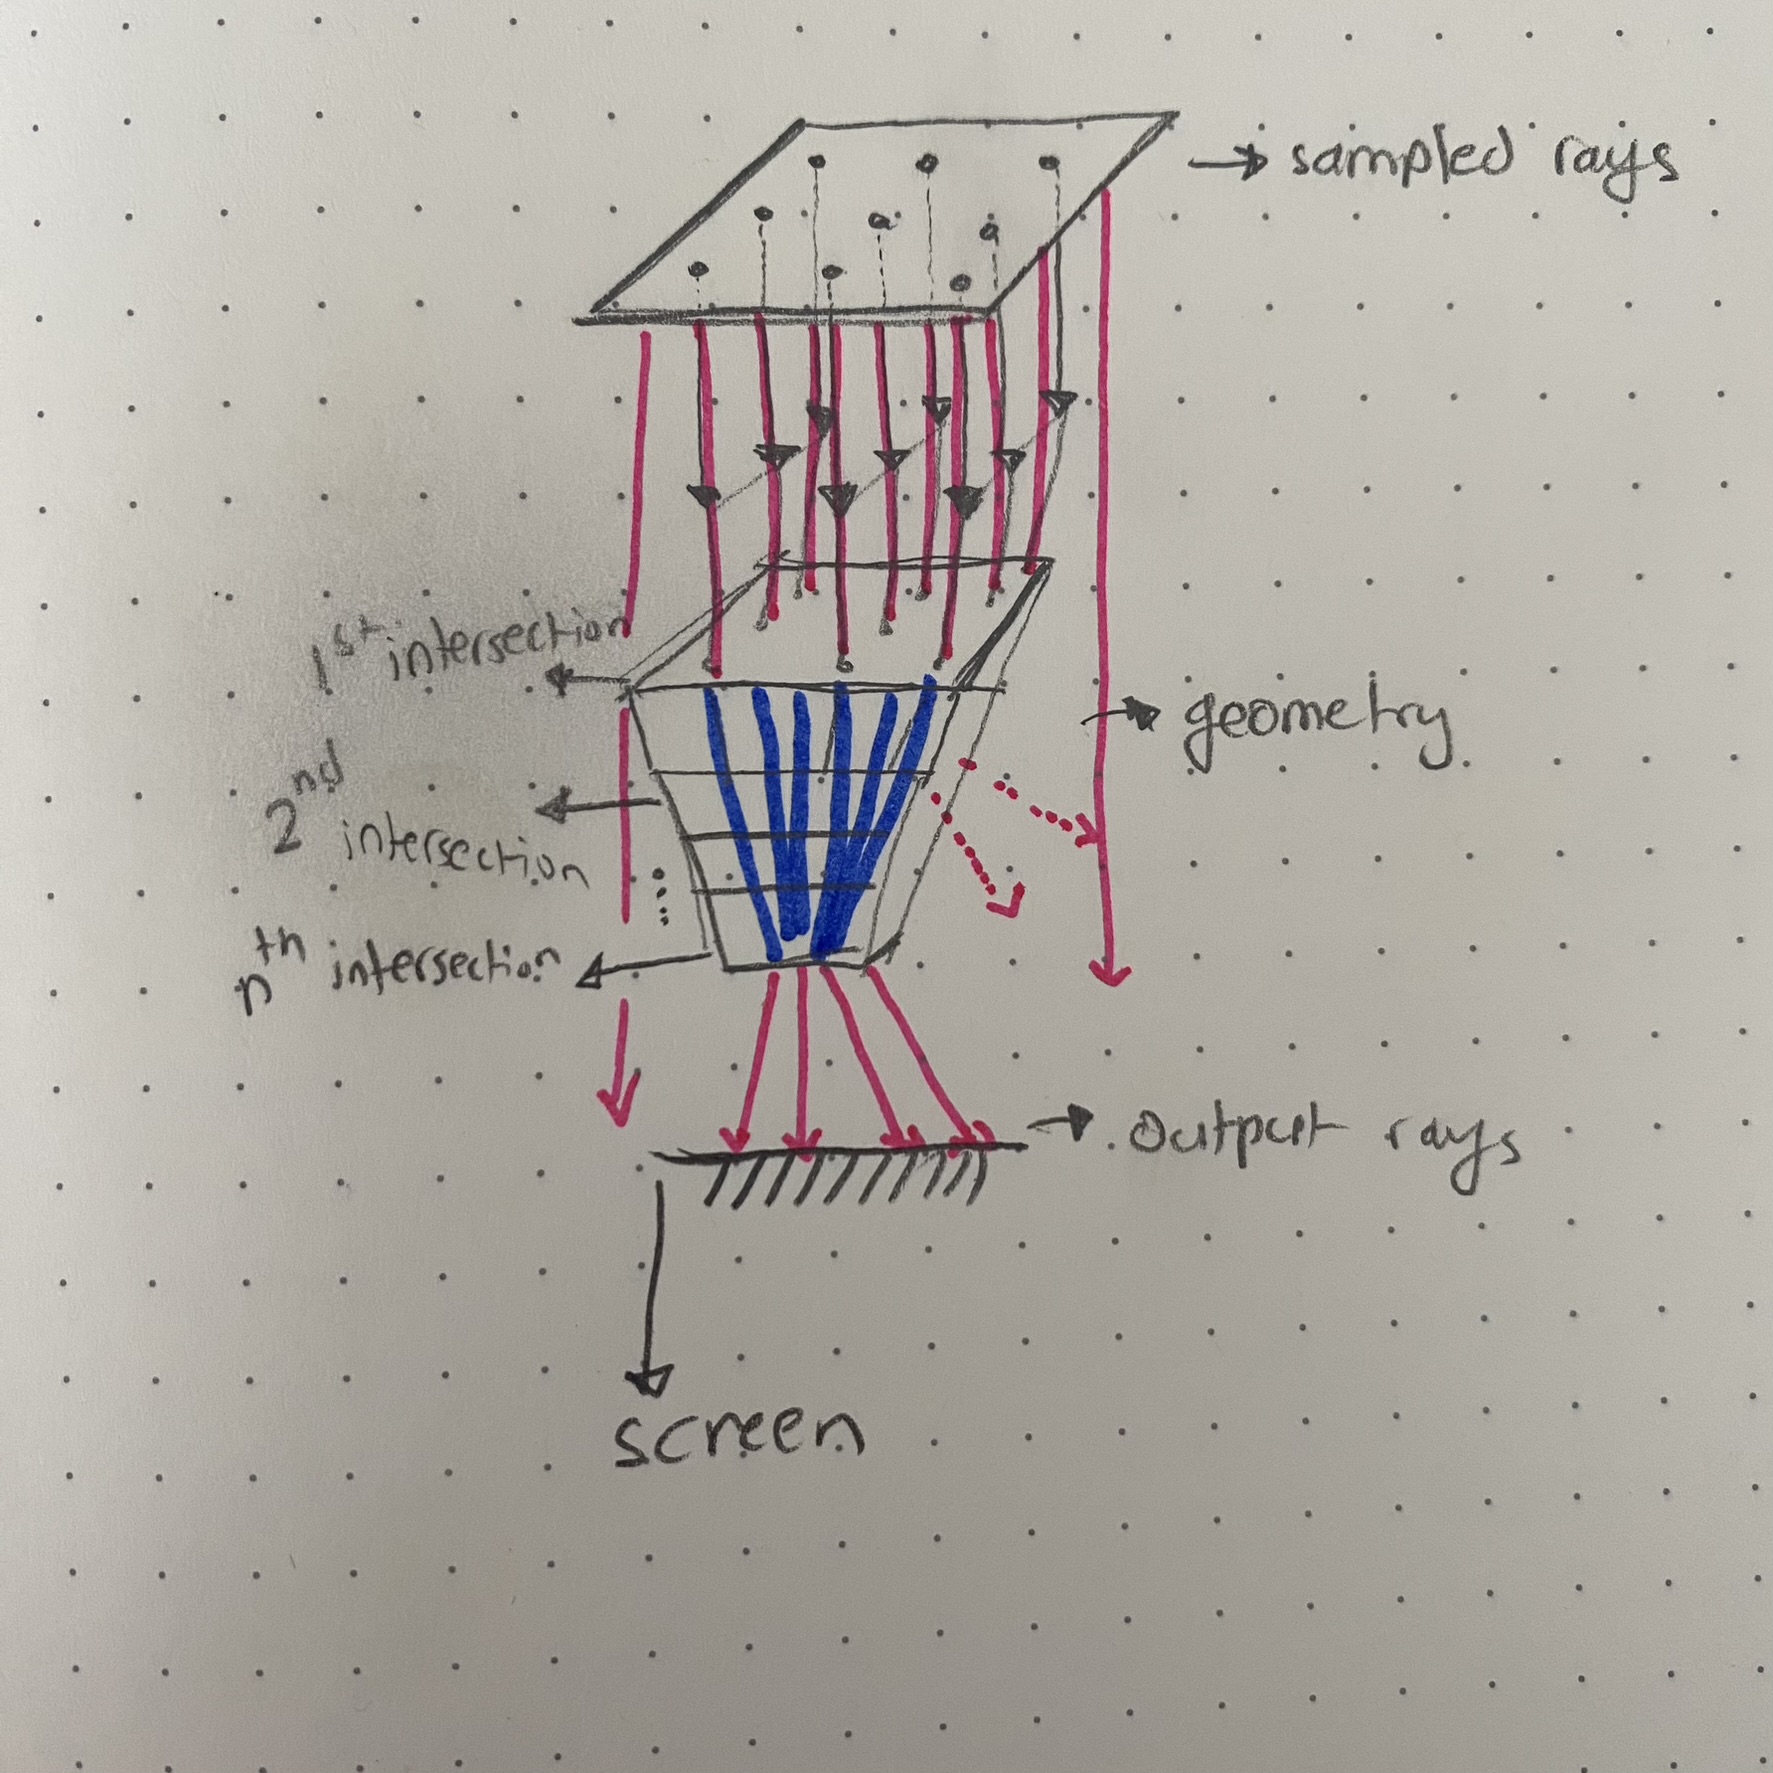 sampled rays
1st intersection
geometry
2nd
intersection
nth intersection
output rays
screen